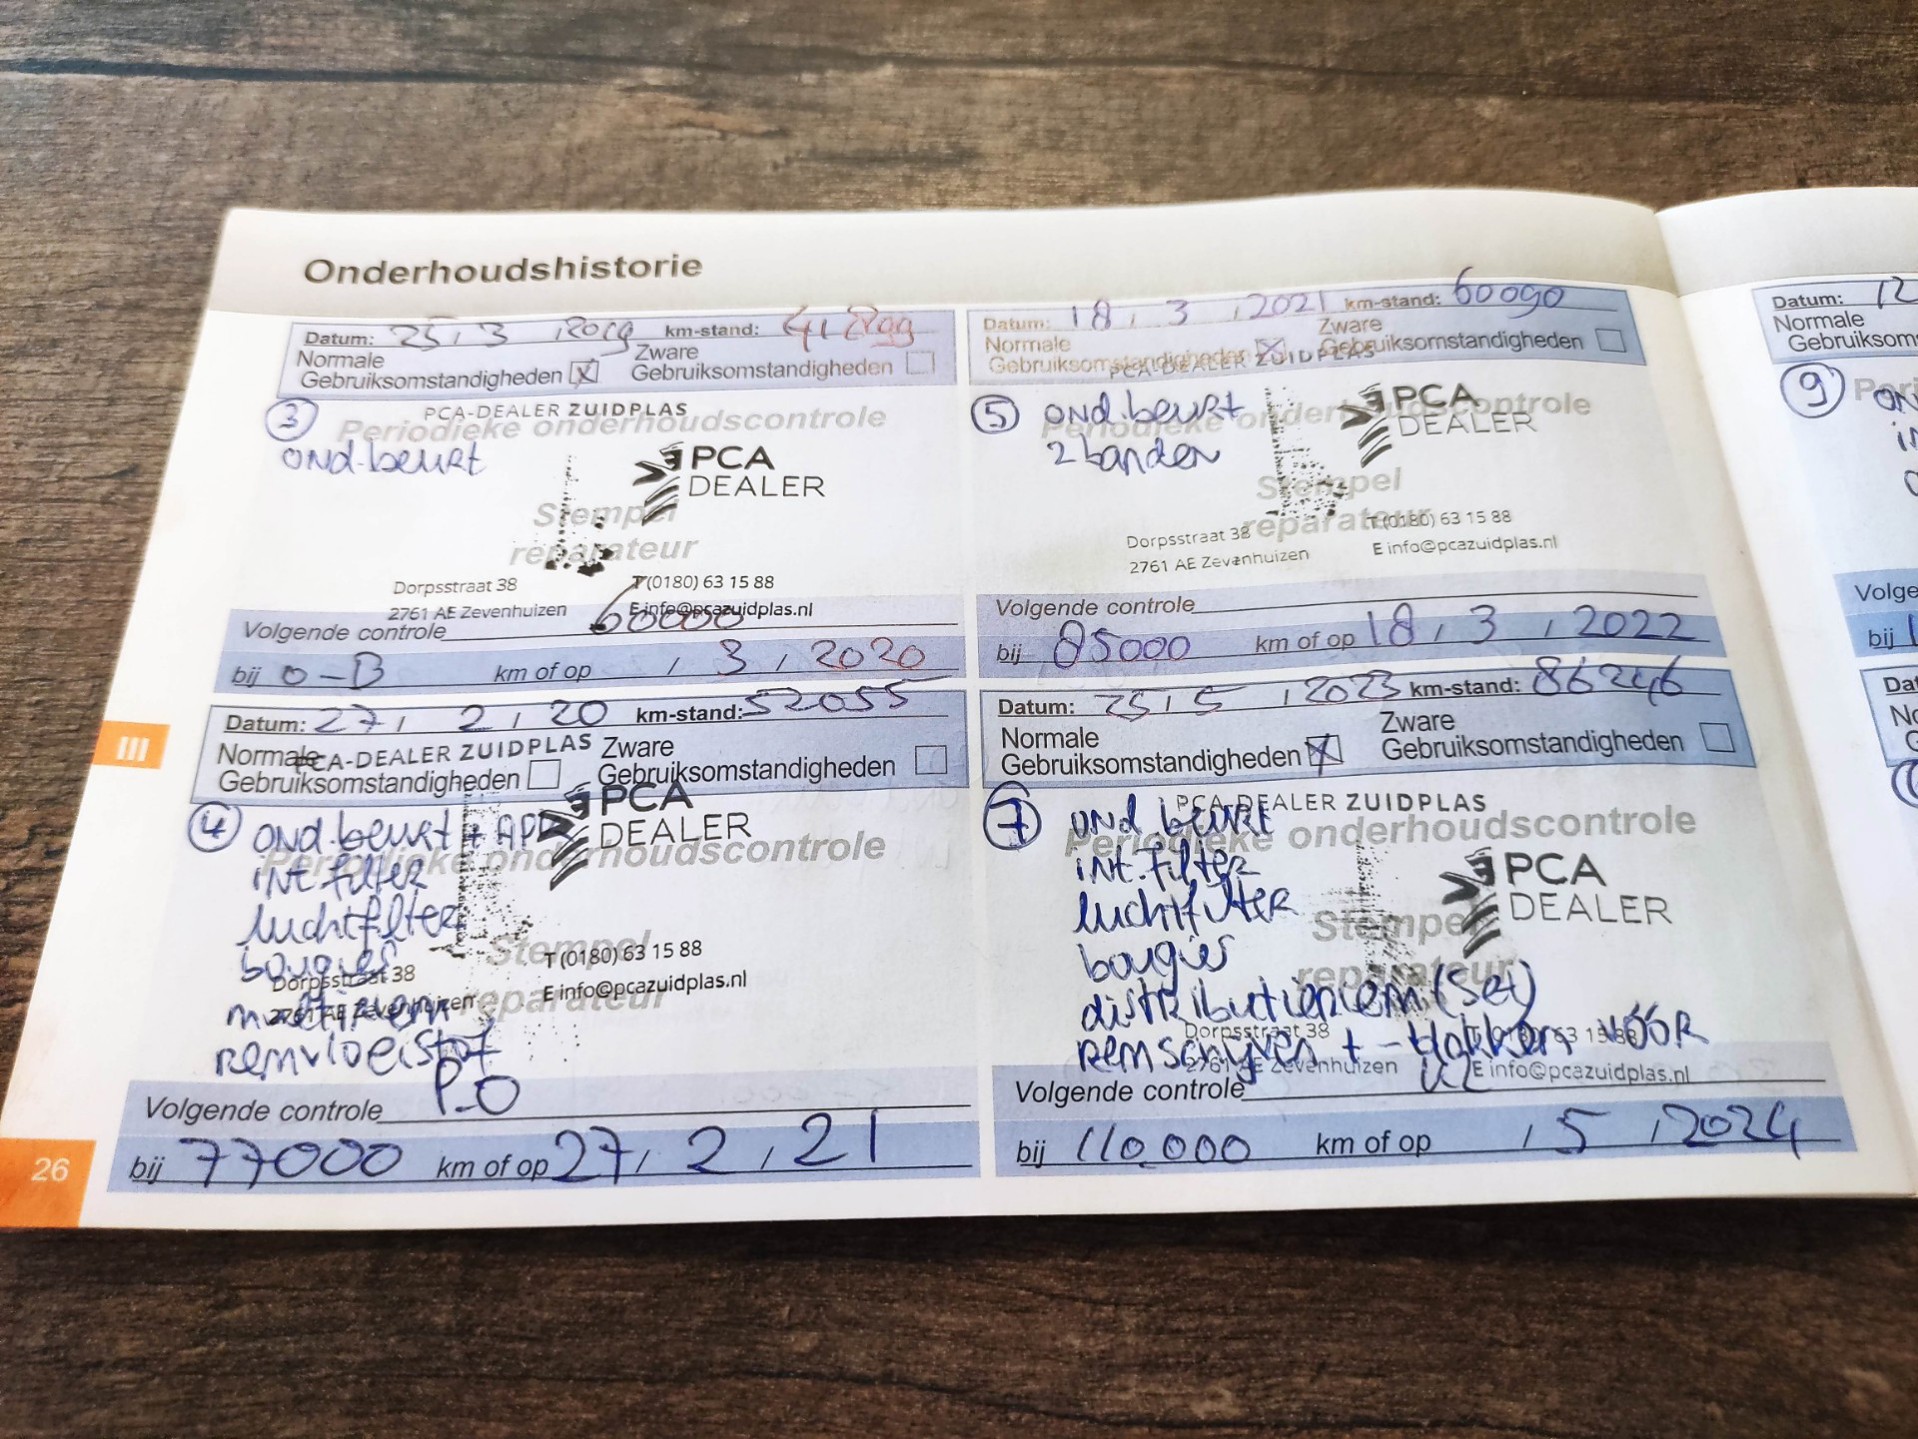 Onderhoudshistorie
Datum: 25 / 3 / 2019 km-stand:
Normale Gebruiksomstandigheden
Zware Gebruiksomstandigheden
3
PCA-DEALER ZUIDPLAS
Periodieke onderhoudscontrole
ond.beurt
PCA
DEALER
Stempel
reparateur
Dorpsstraat 38 T (0180) 63 15 88
2761 AE Zevenhuizen E info@pcazuidplas.nl
Volgende controle 60000
bij 0-B km of op / 3 / 2020
Datum: 27 / 2 / 20 km-stand: 52055
Normale Gebruiksomstandigheden
Zware Gebruiksomstandigheden
PCA-DEALER ZUIDPLAS
PCA
DEALER
4
ond.beurt +
Periodieke onderhoudscontrole
int. filter
luchtfilter
bougies
Stempel
reparateur
T (0180) 63 15 88
Dorpsstraat 38
E info@pcazuidplas.nl
2761 AE Zevenhuizen
remvloeistof
P.O
Volgende controle
bij 77000 km of op 27 / 2 / 21
Datum: 18 / 3 / 2021 km-stand: 60090
Normale Gebruiksomstandigheden
Zware Gebruiksomstandigheden
PCA-DEALER ZUIDPLAS
5
ond.beurt
Periodieke onderhoudscontrole
2 banden
PCA
DEALER
Stempel
reparateur
Dorpsstraat 38 T (0180) 63 15 88
2761 AE Zevenhuizen E info@pcazuidplas.nl
Volgende controle
bij 85000 km of op 18 / 3 / 2022
Datum: 25 / 5 / 2023 km-stand: 86246
Normale Gebruiksomstandigheden
Zware Gebruiksomstandigheden
7
PCA-DEALER ZUIDPLAS
ond.beurt
Periodieke onderhoudscontrole
int. filter
luchtfilter
bougies
PCA
DEALER
Stempel
reparateur
distributieriem (set)
remschijven + -blokken vóór
Dorpsstraat 38 T (0180) 63 15 88
2761 AE Zevenhuizen E info@pcazuidplas.nl
Volgende controle
bij 110.000 km of op / 5 / 2024
III
26
Datum: 12
Normale
9
Volge
bij